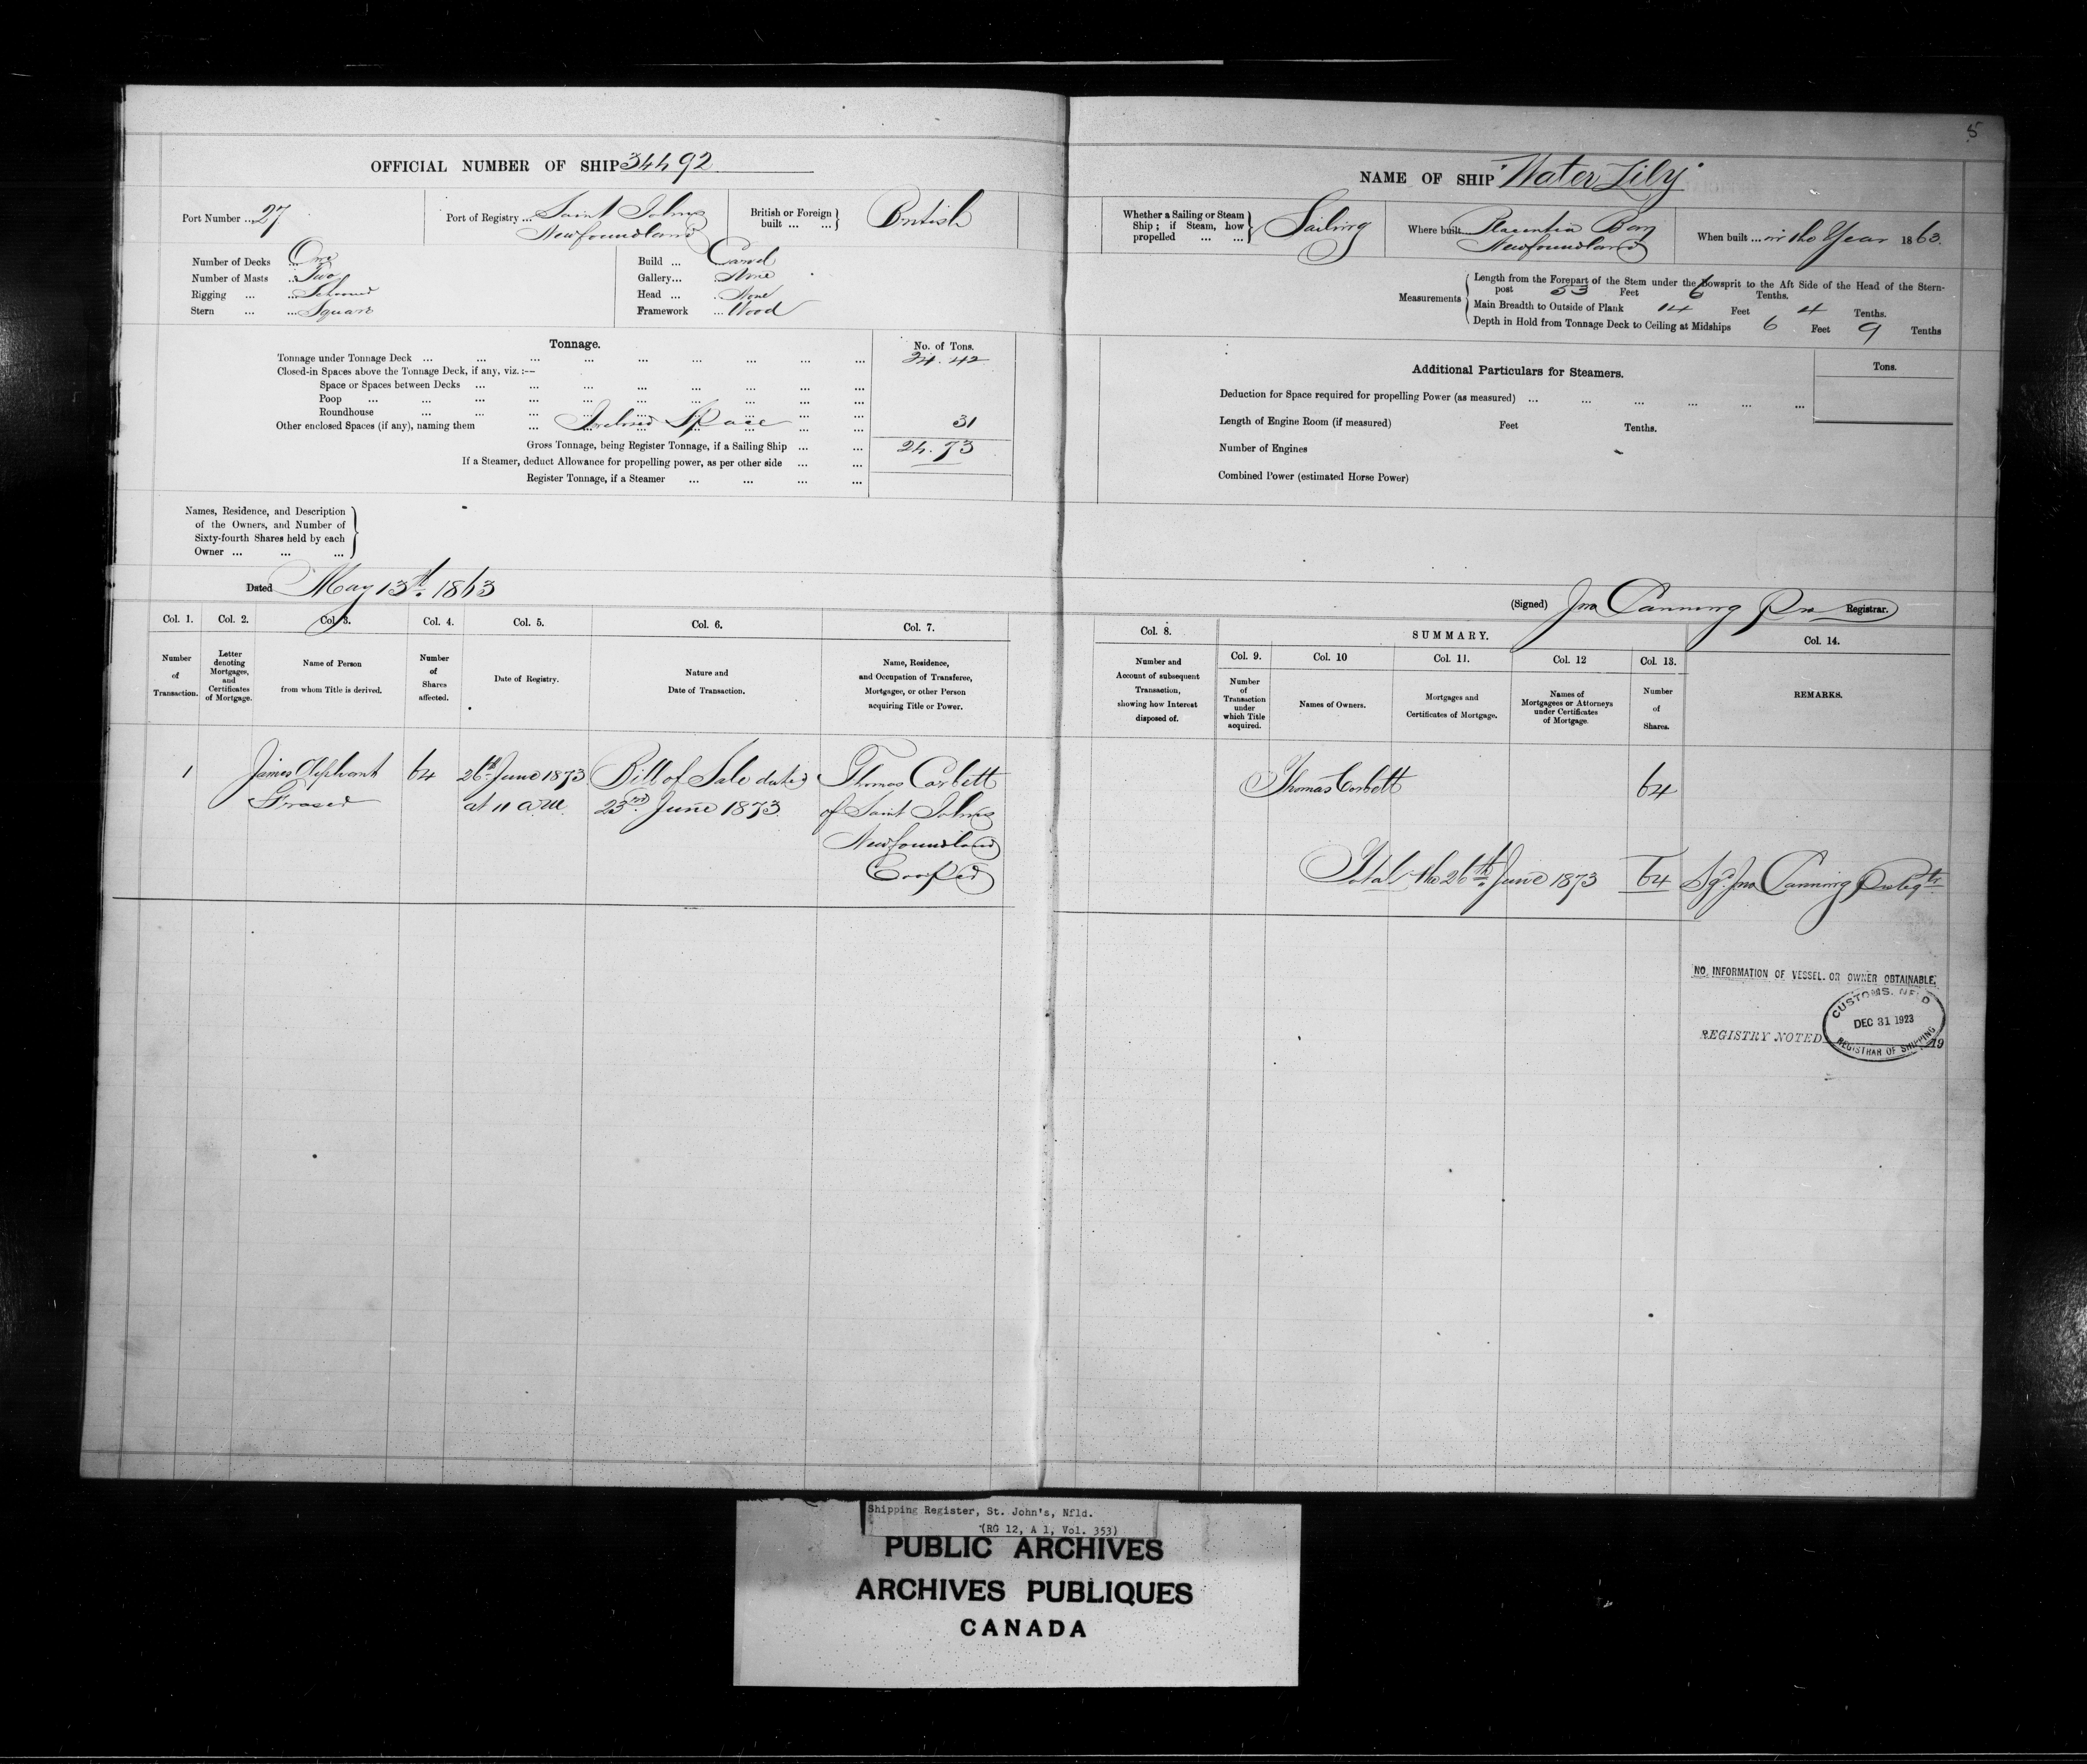 5
OFFICIAL NUMBER OF SHIP 34492
Port Number ... 27
Port of Registry ... Saint Johns
Newfoundland
British or Foreign
built ... ...
British
Number of Decks ... One
Number of Masts ... Two
Rigging ... ... Schooner
Stern ... ... Square
Build ... Carvel
Gallery... None
Head ... None
Framework ... Wood
Tonnage.
No. of Tons.
Tonnage under Tonnage Deck ... 24.42
Closed-in Spaces above the Tonnage Deck, if any, viz.:—
Space or Spaces between Decks ...
Poop ...
Roundhouse ...
Other enclosed Spaces (if any), naming them ... Inclosed Space 31
Gross Tonnage, being Register Tonnage, if a Sailing Ship ... 24.73
If a Steamer, deduct Allowance for propelling power, as per other side ...
Register Tonnage, if a Steamer ...
Names, Residence, and Description
of the Owners, and Number of
Sixty-fourth Shares held by each
Owner ... ... ...
Dated May 13th. 1863
NAME OF SHIP "Water Lily"
Whether a Sailing or Steam
Ship; if Steam, how
propelled ... ...
Sailing
Where built... Placentia Bay
Newfoundland
When built ... in the Year 1863.
Measurements
Length from the Forepart of the Stem under the Bowsprit to the Aft Side of the Head of the Stern-
post 53 Feet 6 Tenths.
Main Breadth to Outside of Plank 14 Feet 4 Tenths.
Depth in Hold from Tonnage Deck to Ceiling at Midships 6 Feet 9 Tenths
Additional Particulars for Steamers.
Tons.
Deduction for Space required for propelling Power (as measured) ...
Length of Engine Room (if measured) Feet Tenths.
Number of Engines
Combined Power (estimated Horse Power)
(Signed) Jno Canning Pro Registrar.
Col. 1. Col. 2. Col. 3. Col. 4. Col. 5. Col. 6. Col. 7.
Number
of
Transaction.
Letter
denoting
Mortgages,
and
Certificates
of Mortgage.
Name of Person
from whom Title is derived.
Number
of
Shares
affected.
Date of Registry.
Nature and
Date of Transaction.
Name, Residence,
and Occupation of Transferee,
Mortgagee, or other Person
acquiring Title or Power.
Col. 8.
Number and
Account of subsequent
Transaction,
showing how Interest
disposed of.
SUMMARY.
Col. 9. Col. 10 Col. 11. Col. 12 Col. 13.
Number
of
Transaction
under
which Title
acquired.
Names of Owners.
Mortgages and
Certificates of Mortgage.
Names of
Mortgagees or Attorneys
under Certificates
of Mortgage.
Number
of
Shares.
Col. 14.
REMARKS.
1
James Oliphant
Fraser
64
26th June 1873
at 11 a.m.
Bill of Sale dated
23rd June 1873.
Thomas Corbett
of Saint Johns
Newfoundland
Cooper
Thomas Corbett 64
Total the 26th June 1873 64 Sgd. Jno Canning
NO INFORMATION OF VESSEL OR OWNER OBTAINABLE.
CUSTOMS. NFLD
DEC 31 1923
REGISTRAR OF SHIPPING
REGISTRY NOTED 19
Shipping Register, St. John's, Nfld.
(RG 12, A 1, Vol. 353)
PUBLIC ARCHIVES
ARCHIVES PUBLIQUES
CANADA